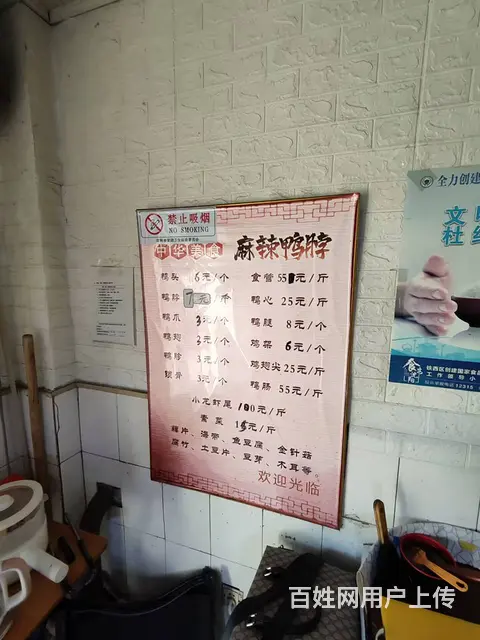 禁止吸烟
NO SMOKING
中华美食 麻辣鸭脖
鸭头 6元/个 食管 55元/斤
鸭脖 7元/斤 鸭心 25元/斤
鸭爪 3元/个 鸭腿 8元/个
鸭翅 3元/个 鸭架 6元/个
鸭珍 3元/个 鸭翅尖 25元/斤
锁骨 3元/个 鸭肠 55元/斤
小龙虾尾 100元/斤
素菜 15元/斤
藕片、海带、鱼豆腐、金针菇
腐竹、土豆片、豆芽、木耳等。
欢迎光临
全力创建
文明
杜绝
铁西区创建国家食品
工作领导小
12315
百姓网用户上传